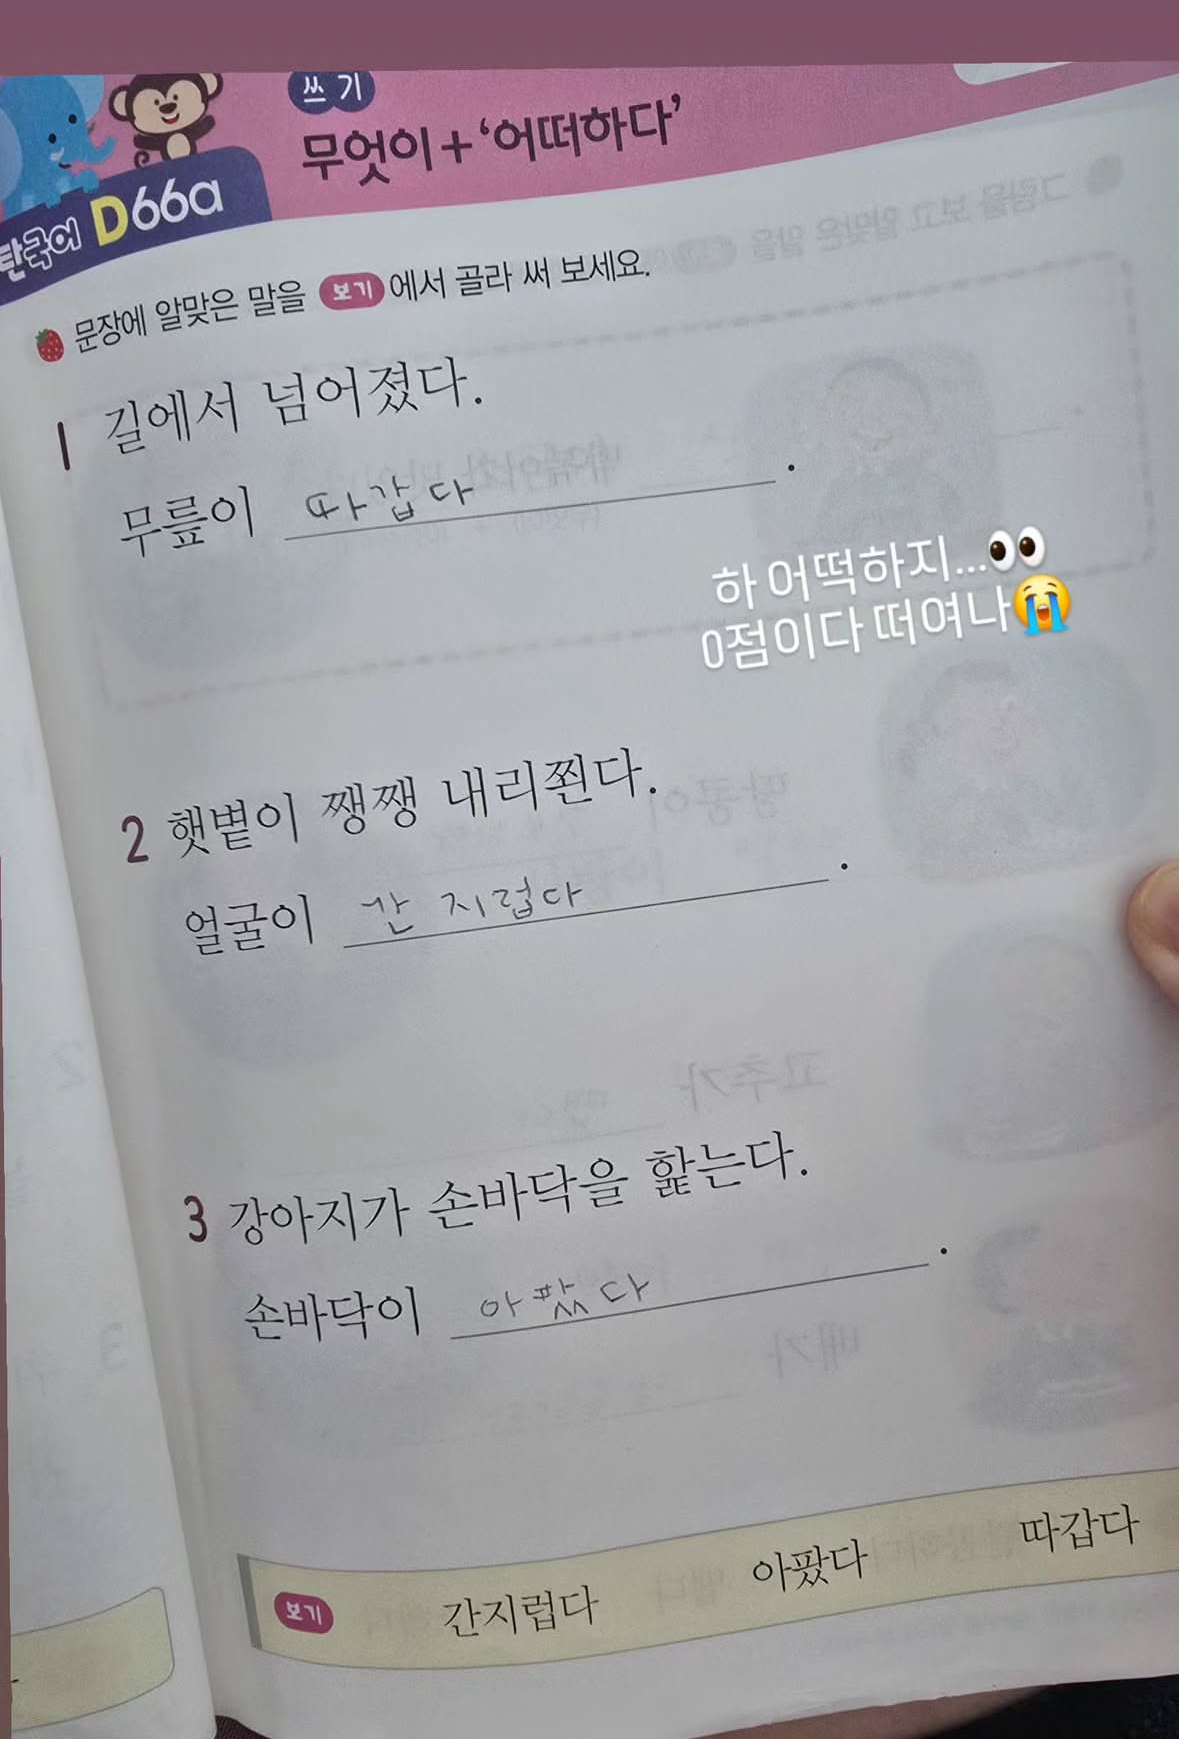 쓰기
무엇이+‘어떠하다’
탄국어 D66a
문장에 알맞은 말을 보기 에서 골라 써 보세요.
1 길에서 넘어졌다.
무릎이 따갑다.
하 어떡하지...👀
0점이다 떠여나😭
2 햇볕이 쨍쨍 내리쬔다.
얼굴이 간지럽다.
3 강아지가 손바닥을 핥는다.
손바닥이 아팠다.
보기 간지럽다 아팠다 따갑다